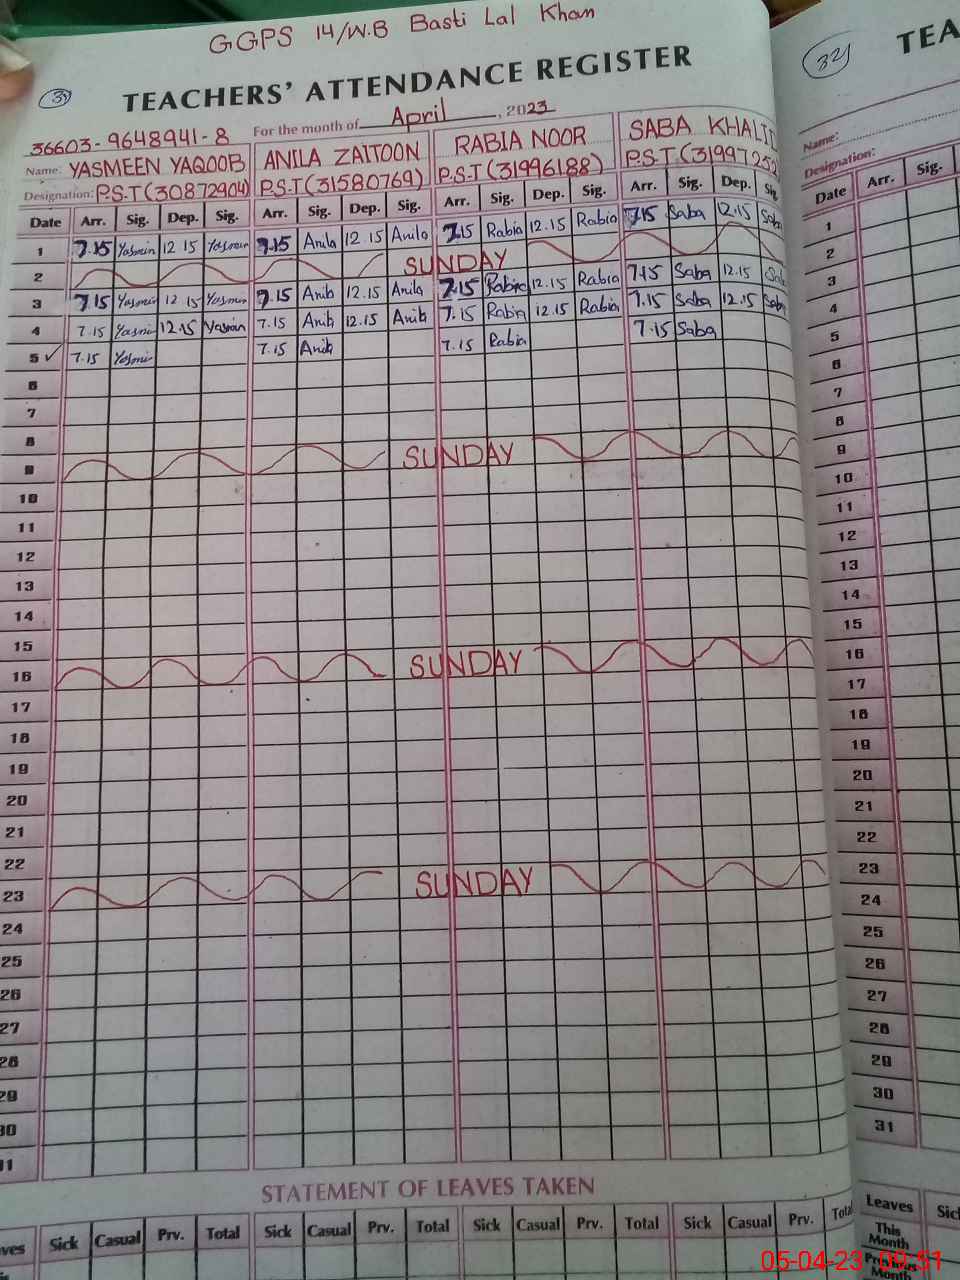 GGPS 14/W.B Basti Lal Khan
31
TEACHERS' ATTENDANCE REGISTER
For the month of April, 2023
36603-9648941-8
Name: YASMEEN YAQOOB ANILA ZAITOON RABIA NOOR SABA KHALID
Designation: P.S.T(30872904) P.S.T(31580769) P.S.T(31996188) P.S.T(3199725
Date Arr. Sig. Dep. Sig. Arr. Sig. Dep. Sig. Arr. Sig. Dep. Sig. Arr. Sig. Dep. Sig
1 7.15 Yasmin 12 15 Yasmin 7.15 Anila 12.15 Anila 7.15 Rabia 12.15 Rabia 7.15 Saba 12.15 Saba
2 SUNDAY
3 7.15 Yasmin 12 15 Yasmin 7.15 Anila 12.15 Anila 7.15 Rabia 12.15 Rabia 7.15 Saba 12.15 Saba
4 7.15 Yasmin 12.15 Yasmin 7.15 Anila 12.15 Anila 7.15 Rabia 12.15 Rabia 7.15 Saba 12.15 Saba
5 ✓ 7.15 Yasmin 7.15 Anila 7.15 Rabia 7.15 Saba
6
7
8
9 SUNDAY
10
11
12
13
14
15
16 SUNDAY
17
18
19
20
21
22
23 SUNDAY
24
25
26
27
28
29
30
31
STATEMENT OF LEAVES TAKEN
ves Sick Casual Prv. Total Sick Casual Prv. Total Sick Casual Prv. Total Sick Casual Prv. Total
32
TEA
Name:
Designation:
Date Arr. Sig.
1
2
3
4
5
6
7
8
9
10
11
12
13
14
15
16
17
18
19
20
21
22
23
24
25
26
27
28
29
30
31
Leaves Sic
This
Month
Previous
Month
05-04-23 09:51